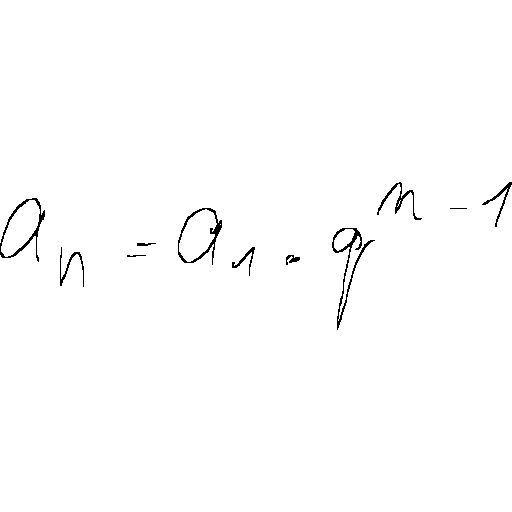 a_n = a_1 · q^{n-1}